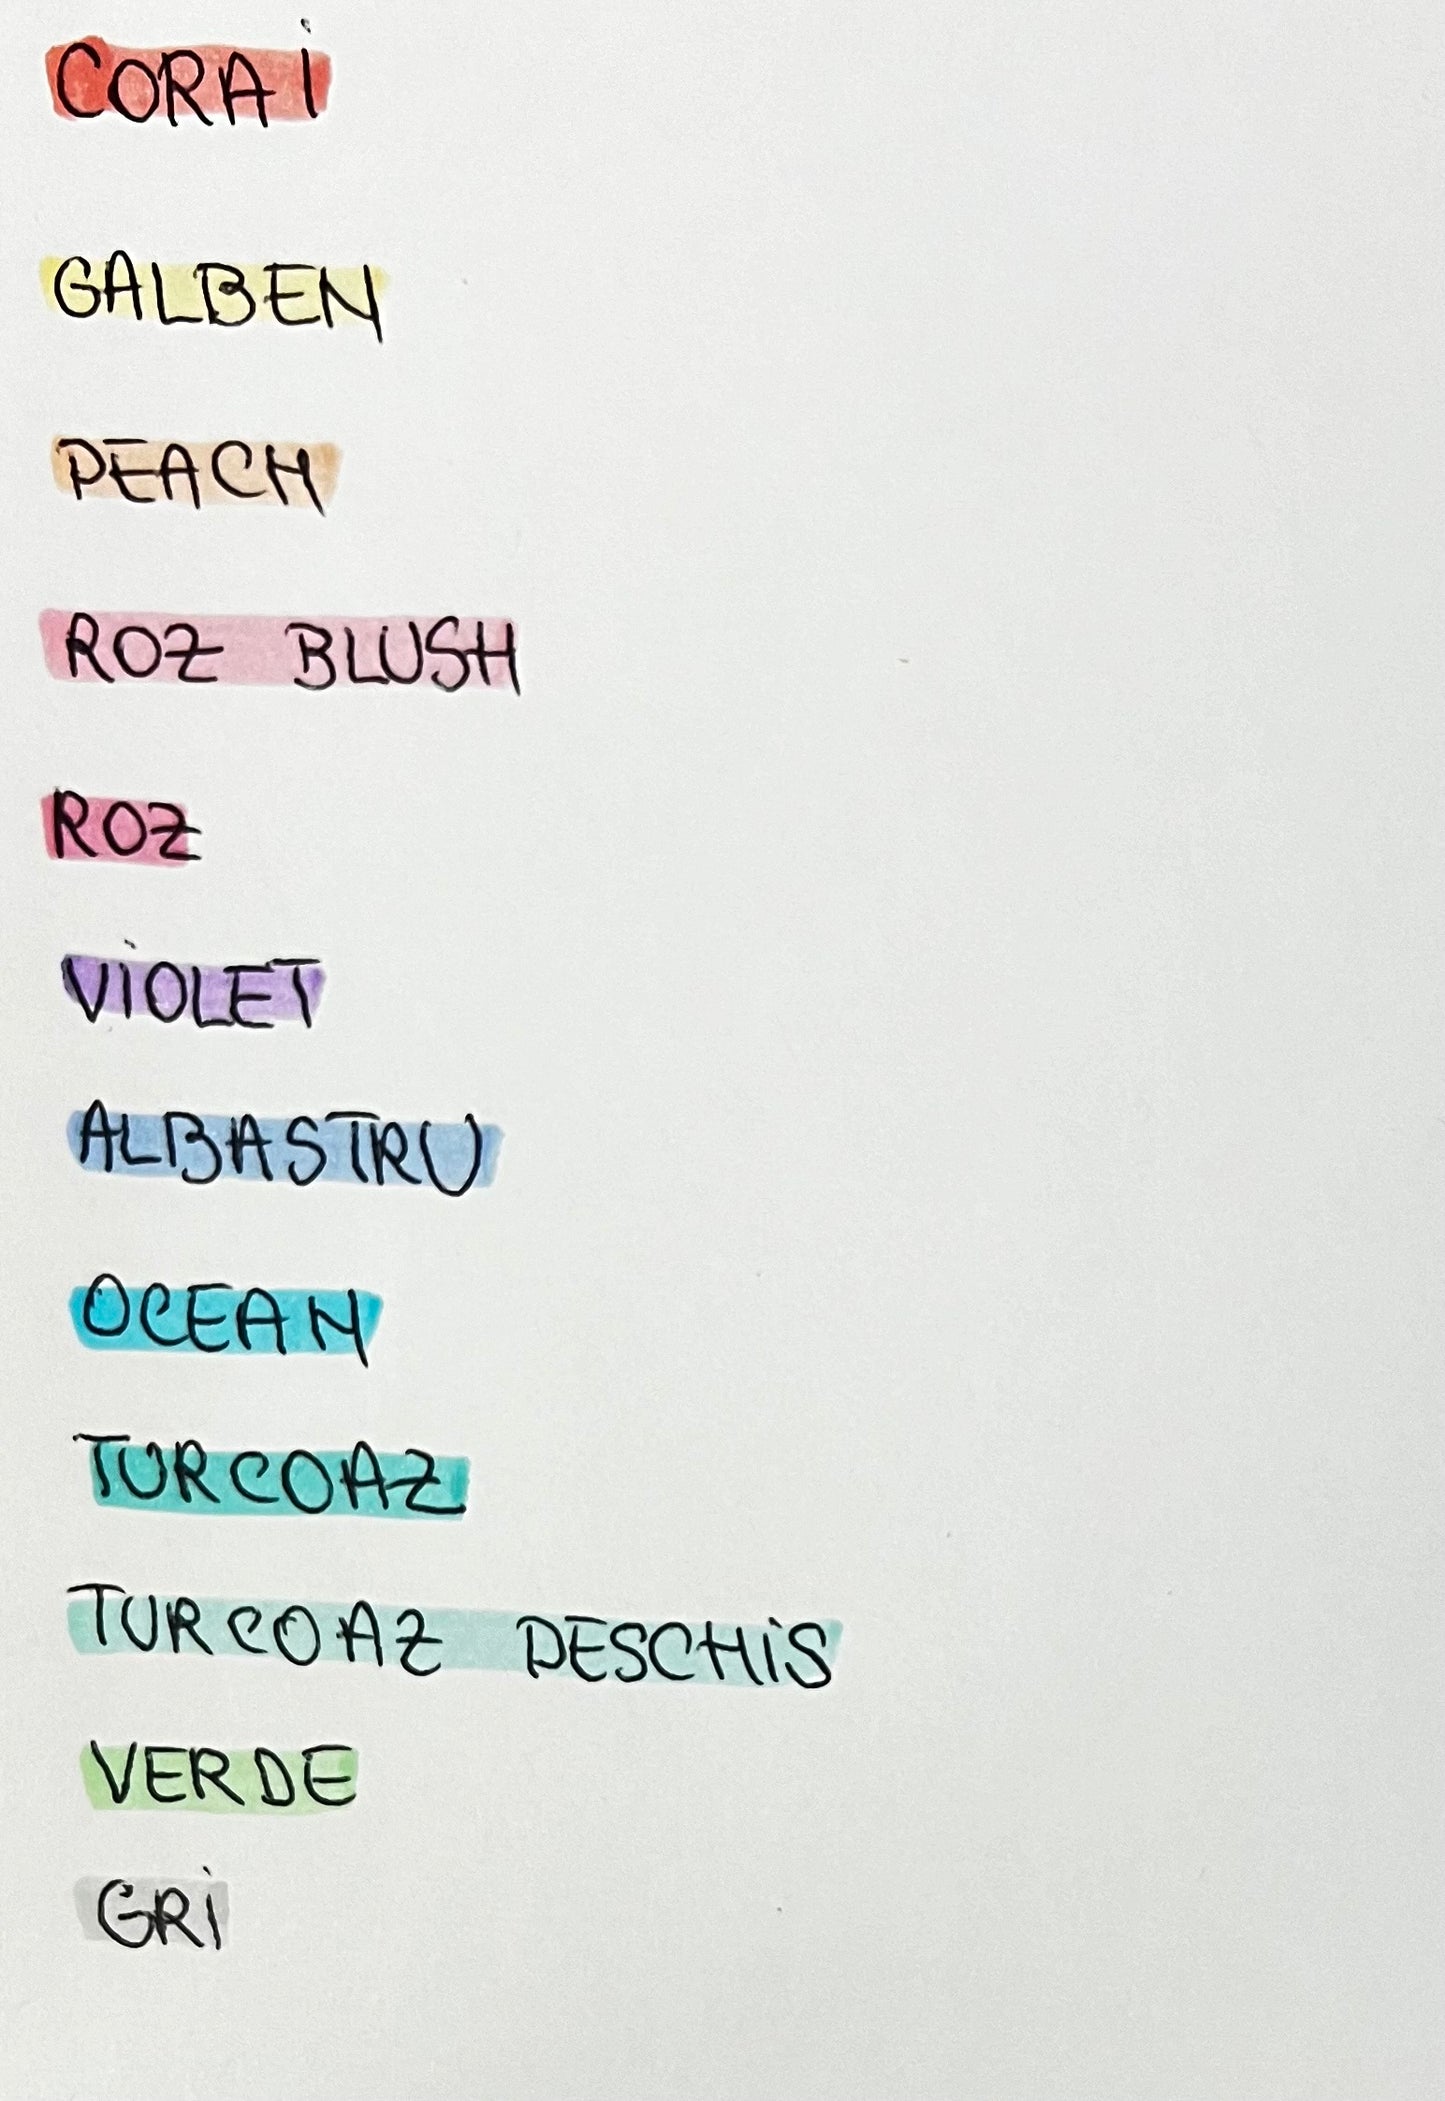 CORAi
GALBEN
PEACH
ROZ BLUSH
ROZ
ViOLET
ALBASTRU
OCEAN
TURCOAZ
TURCOAZ DESCHiS
VERDE
GRi